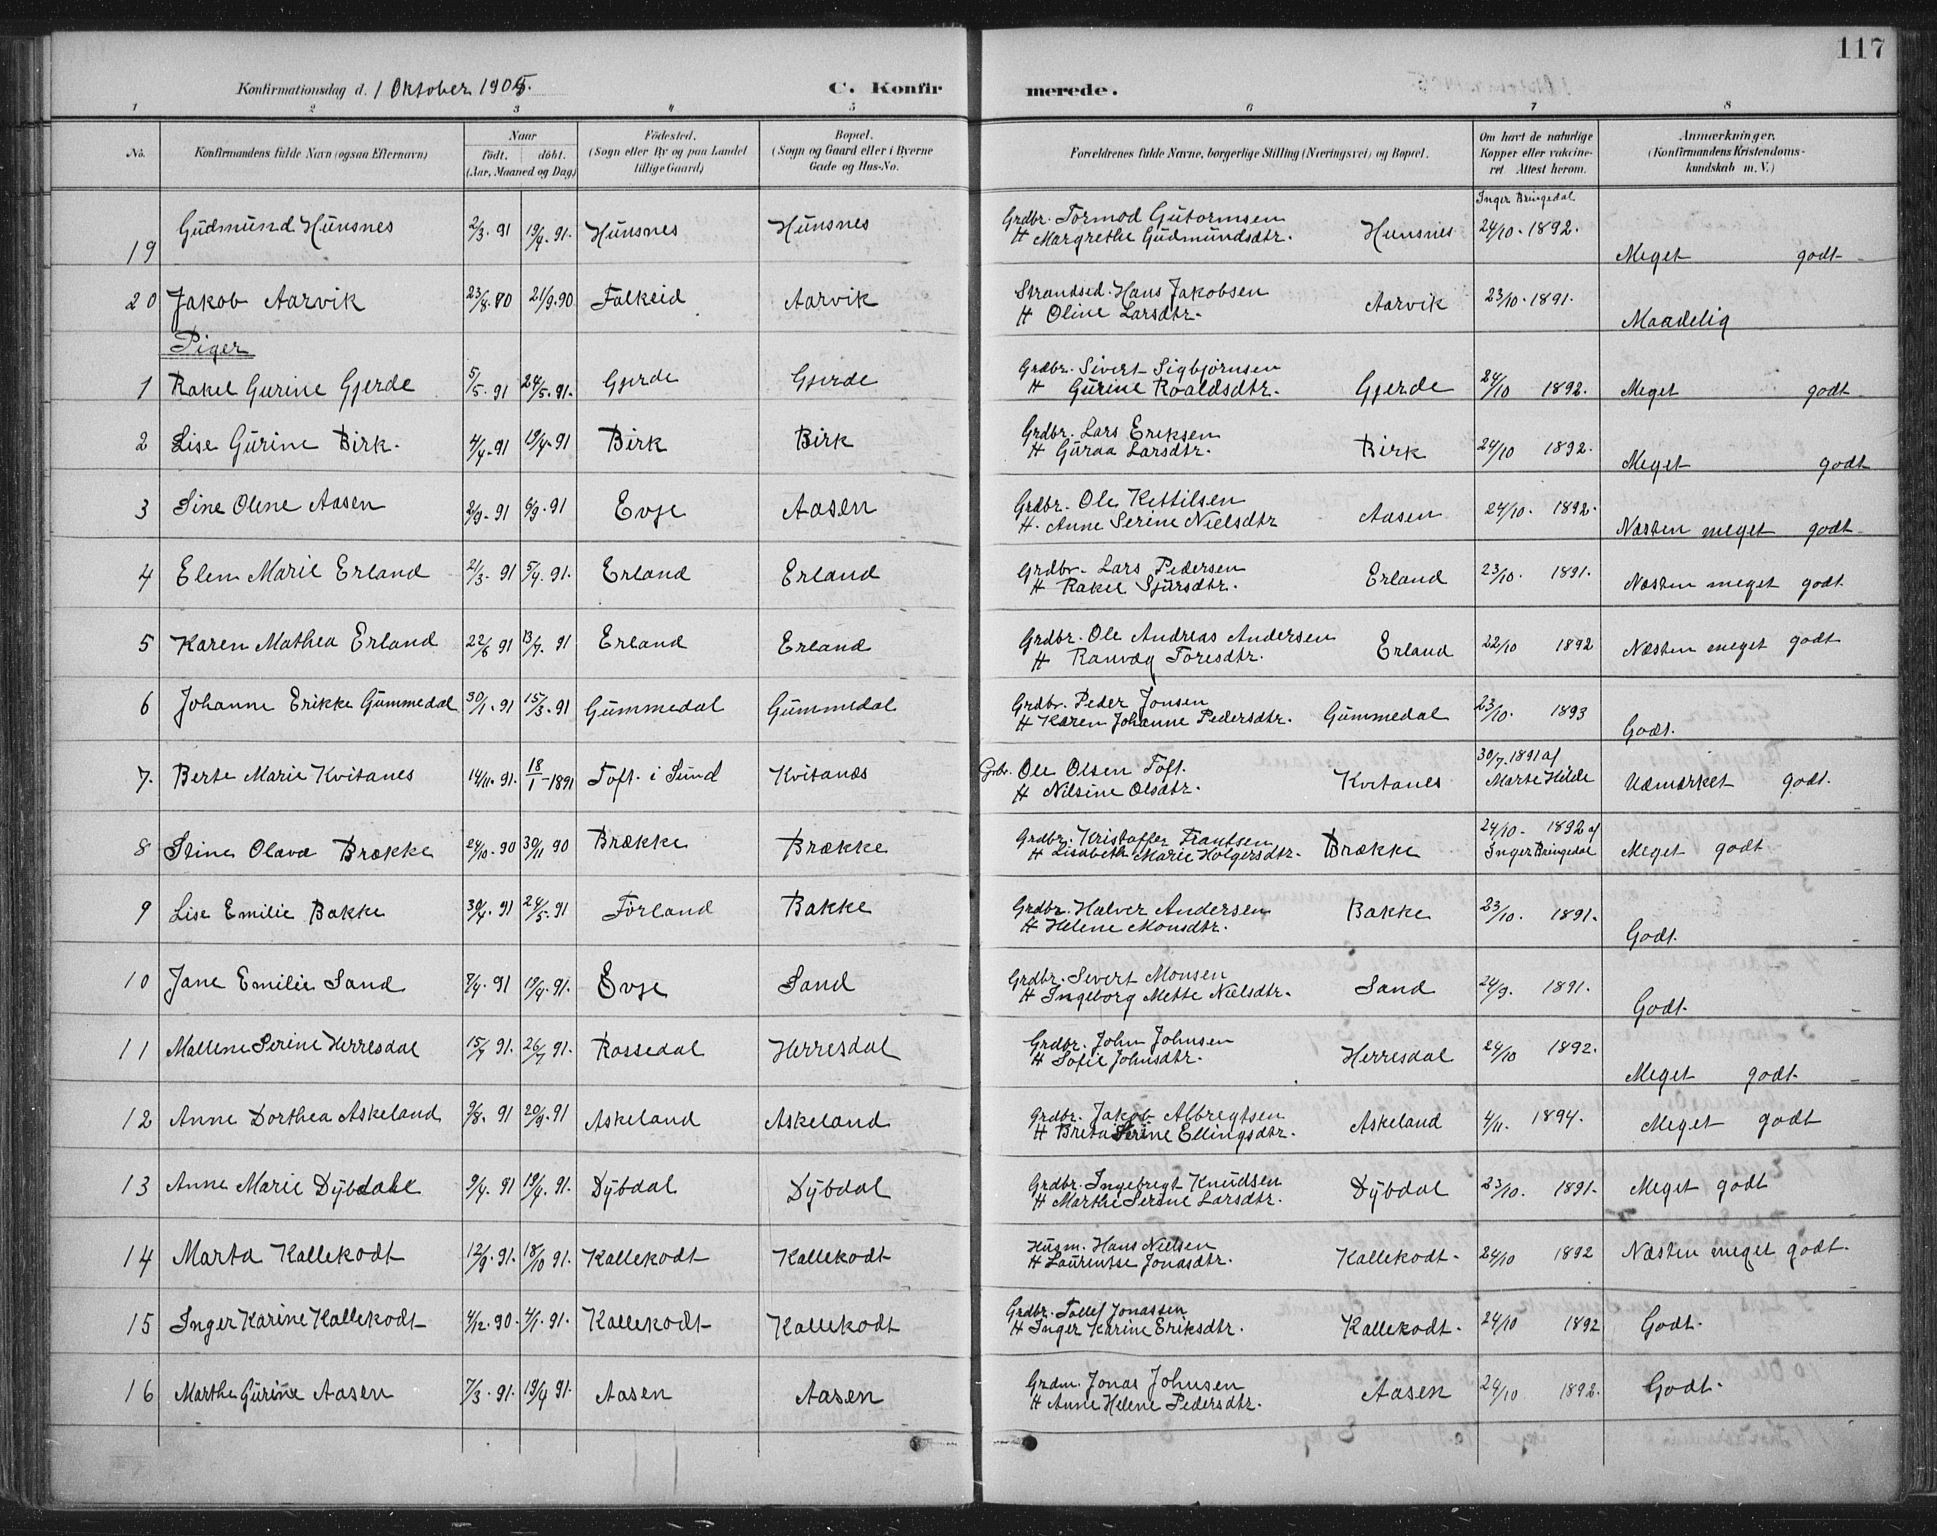 117
Konfirmationsdag d. 1 Oktober 1905.
C. Konfirmerede.
1 2 3 4 5 6 7 8
No. Konfirmandens fulde Navn (ogsaa Efternavn) Naar født. døbt. (Aar, Maaned og Dag) Fødested. (Sogn eller By og paa Landet tillige Gaard) Bopæl. (Sogn og Gaard eller i Byerne Gade og Hus-No. Forældrenes fulde Navne, borgerlige Stilling (Næringsvei) og Bopæl. Om havt de naturlige Kopper eller vakcineret. Attest herom. Anmærkninger. (Konfirmandens Kristendomskundskab m. V.)
19 Gudmund Hunsnes 2/3. 91 19/4. 91. Hunsnes Hunsnes Grdbr. Tormod Gutormsen H Margrethe Gudmundsdtr. Hunsnes Inger Bringedal 24/10. 1892. Meget godt
20 Jakob Aarvik 23/8. 90 21/9. 90 Falkeid Aarvik Strandsid. Hans Jakobsen H Oline Larsdtr. Aarvik 23/10. 1891. Maadelig
Piger
1 Rakel Gurine Gjerde 5/5. 91 24/5. 91. Gjerde Gjerde Grdbr. Sivert Sigbjørnsen H Gurine Roaldsdtr. Gjerde 24/10 1892. Meget godt
2 Lise Gurine Birk. 4/4. 91 19/4. 91 Birk Birk Grdbr. Lars Eriksen H Guraa Larsdtr. Birk 24/10 1892. Meget godt
3 Sine Olene Aasen 2/9. 91 6/9. 91 Evje Aasen Grdbr. Ole Kittilsen H. Anne Serine Nielsdtr Aasen 24/10. 1892. Næsten meget godt
4 Elen Marie Erland 21/3. 91 5/4. 91. Erland Erland Grdbr. Lars Pedersen H Rakel Sjursdtr. Erland 23/10. 1891. Næsten meget godt.
5 Karen Mathea Erland 22/6 91 13/7. 91 Erland Erland Grdbr. Ole Andreas Andersen H Ranvæg Toresdtr. Erland 22/10 1892 Næsten meget godt
6 Johanne Erikke Gummedal 30/1. 91 15/3. 91 Gummedal Gummedal Grdbr. Peder Jonsen H Karen Johanne Pedersdtr. Gummedal 23/10. 1893 Godt.
7. Berte Marie Kvitanes 14/11. 91. 18/1 - 1891 Toft i Sund Kvitanæs Grbr. Ole Olsen Toft. H Nilsine Olsdtr. Kvitanes 30/7. 1891 af Marte Hilde Udmærket godt.
8 Stine Olava Brække 24/10. 90 30/11 90 Brække Brække Grdbr. Kristoffer Frantsen H Lisabeth Marie Holgersdtr. Brække 24/10. 1892 af Inger Bringedal Meget godt.
9 Lise Emilie Bakke 30/4. 91 24/5. 91 Førland Bakke Grdbr. Halver Andersen H Helene Monsdtr. Bakke 23/10. 1891. Godt.
10 Jane Emilie Sand 7/4. 91 19/4. 91. Evje Sand Grdbr. Sivert Monsen H Ingeborg Mette Nielsdtr. Sand 24/9. 1891. Godt.
11 Mallene Serine Herresdal 15/7 91. 26/7 91. Rossedal Herresdal Grdbr. John Johnsen H Sofie Johnsdtr. Herresdal 24/10 1892. Meget godt.
12 Anne Dorthea Askeland 9/8. 91 20/9. 91 Askeland Askeland Grdbr. Jakob Albregtsen H Breta Serine Ellingsdtr. Askeland 4/11. 1894. Meget godt
13 Anne Marie Dybdahl 9/4. 91 19/4. 91. Dybdal Dybdal Grdbr. Ingebregt Knudsen H Marthe Serine Larsdtr. Dybdal 23/10. 1891. Meget godt
14 Marta Kallekodt 12/9. 91. 18/10 91. Kallekodt Kallekodt Husm. Hans Nielsen H Laurentse Jonasdtr. Kallekodt. 24/10 1892 Næsten meget godt.
15 Inger Karine Kallekodt 4/12. 90. 4/1. 91. Kallekodt Kallekodt Grdbr. Tollef Jonassen H Inger Karine Eriksdtr. Kallekodt. 24/10 1892 Godt.
16 Marthe Gurine Aasen 7/3. 91. 19/4 91. Aasen Aasen Grdm. Jonas Johnsen H Anne Helene Pedersdtr. Aasen 24/10. 1892. Godt.